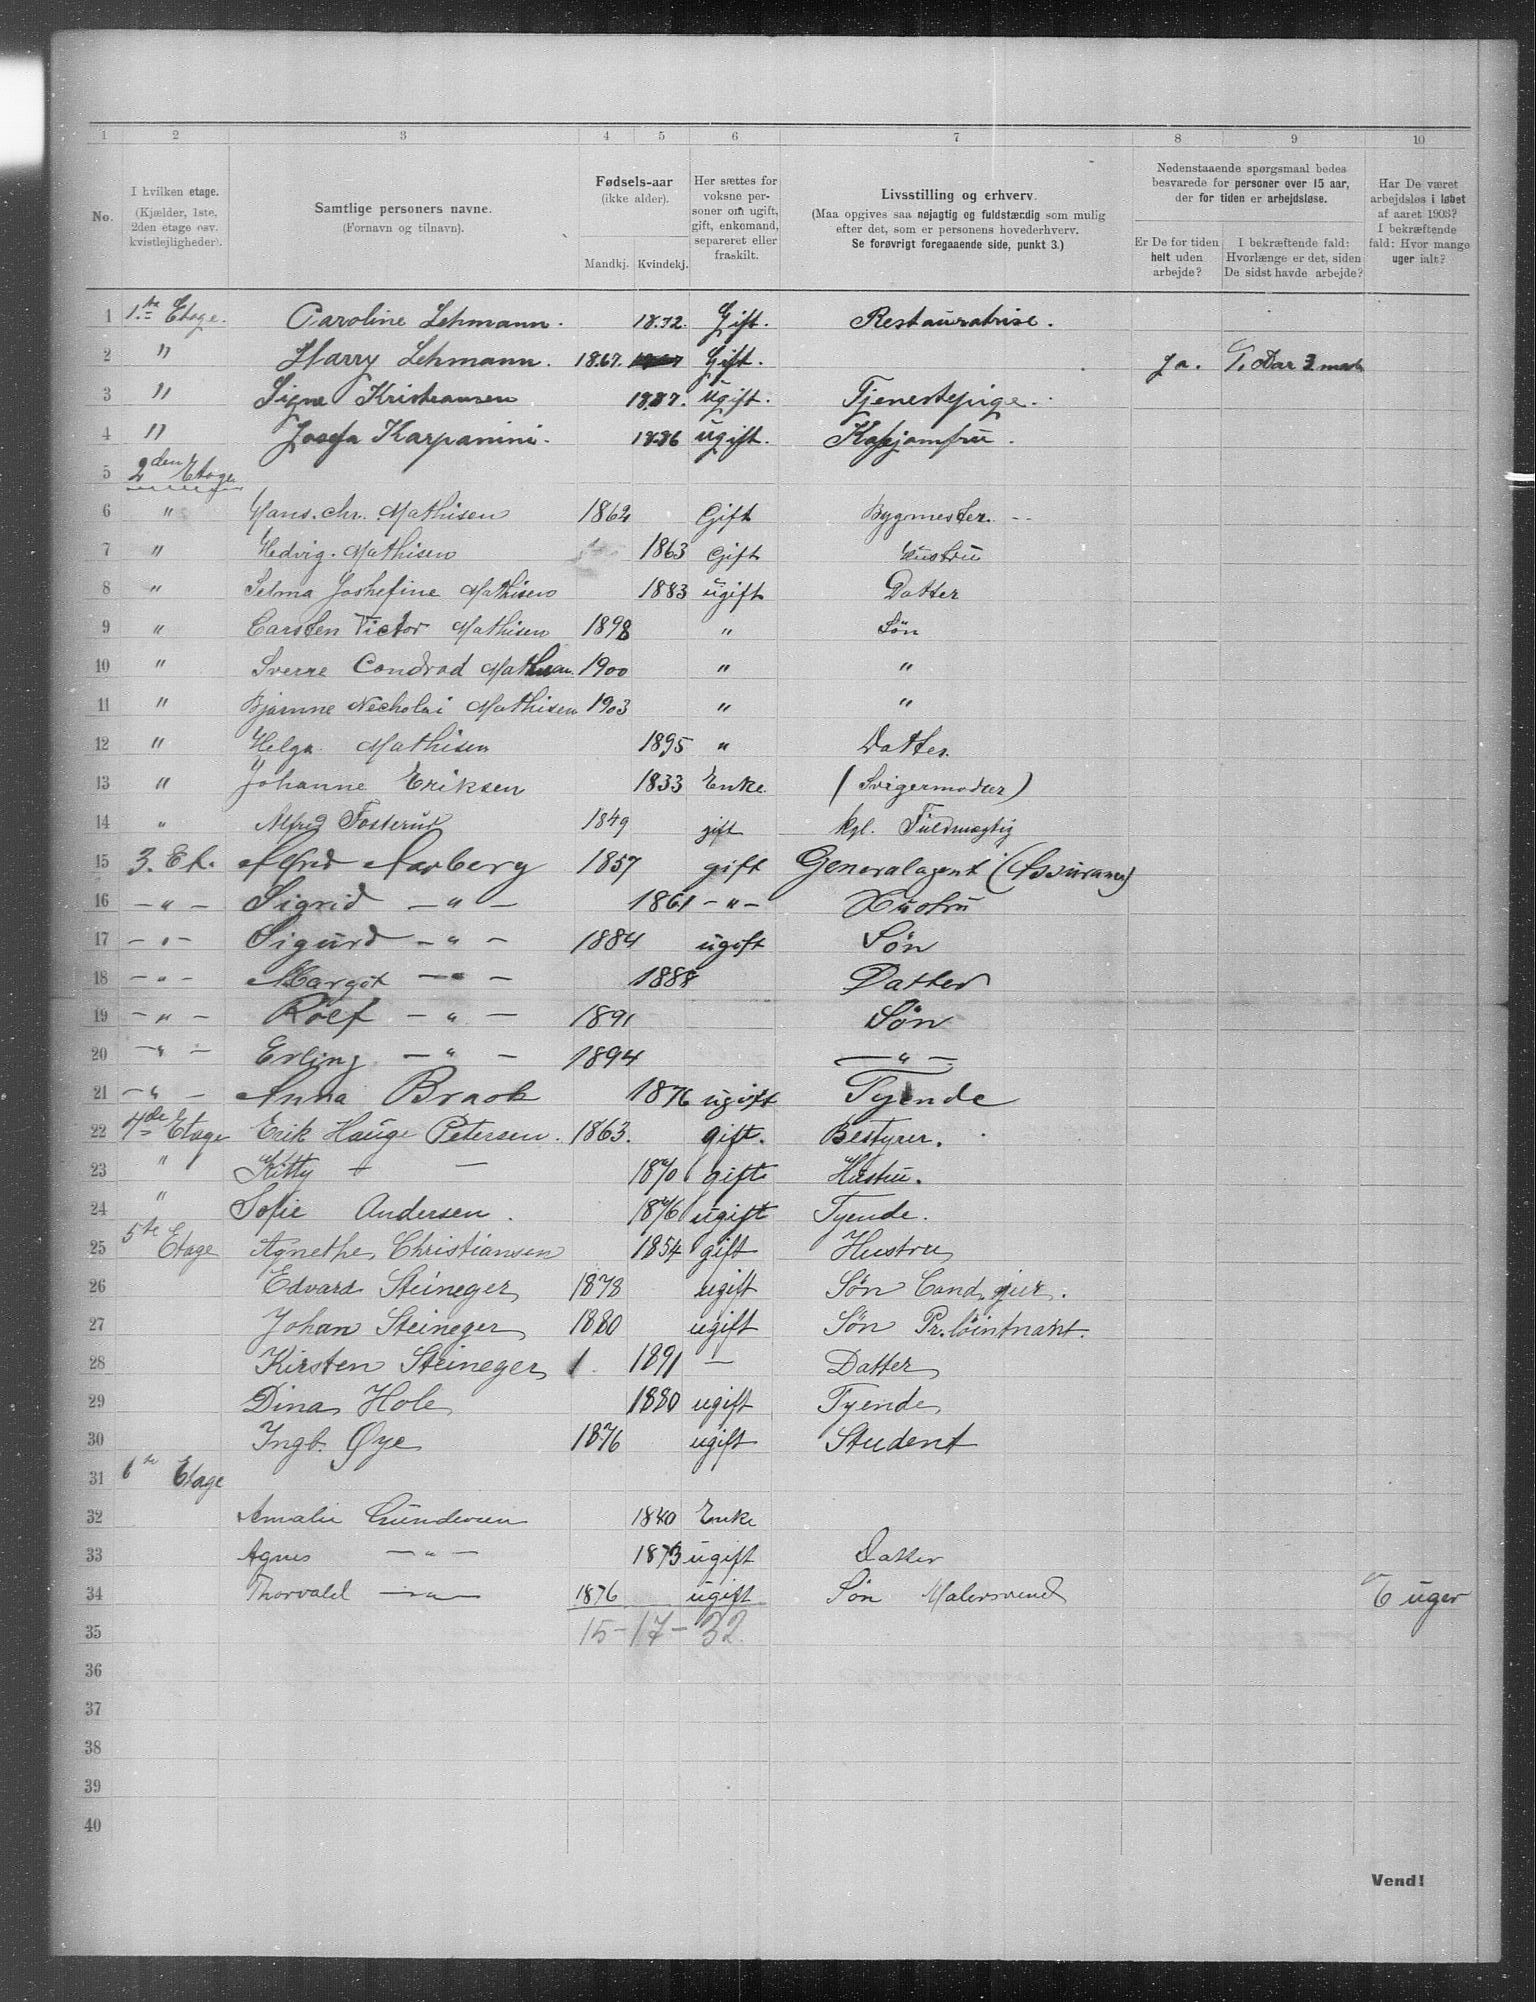 1 2 3 4 5 6 7 8 9 10
No.
I hvilken etage. (Kjælder, 1ste, 2den etage osv. kvistlejligheder).
Samtlige personers navne. (Fornavn og tilnavn).
Fødsels-aar (ikke alder). Mandkj. Kvindekj.
Her sættes for voksne personer om ugift, gift, enkemand, separeret eller fraskilt.
Livsstilling og erhverv. (Maa opgives saa nøjagtig og fuldstændig som mulig efter det, som er personens hovederhverv. Se forøvrigt foregaaende side, punkt 3.)
Nedenstaaende spørgsmaal bedes besvarede for personer over 15 aar, der for tiden er arbejdsløse.
Er De for tiden helt uden arbejde?
I bekræftende fald: Hvorlænge er det, siden De sidst havde arbejde?
Har De været arbejdsløs i løbet af aaret 1903? I bekræftende fald: Hvor mange uger ialt?
1 1.ste Etage. Caroline Lehmann. 1872. Gift. Restauratrise.
2 " Harry Lehmann. 1867. Gift. Ja.
3 " Signe Kristiansen 1887. ugift. Tjenestepige.
4 " Josefa Karpanini. 1886 ugift. Kapjomfru.
5 2den Etage
6 " Hans. Chr. Mathisen 1862 Gift Bygmester.
7 " Hedvig. Mathisen 1863 Gift Hustru
8 " Selma Joshefine Mathisen 1883 ugift Datter
9 " Carsten Victor Mathisen 1898 " Søn
10 " Sverre Condrad Mathisen. 1900 " "
11 " Bjarnne Necholai Mathisen 1903 " "
12 " Helga Mathisen 1895 " Datter.
13 " Johanne Eriksen 1833 Enke (Svigermoder)
14 " Alfred Fosterud 1849 gift kgl. Fuldmægtig
15 3. Et. Alfred Aarberg 1857 gift Generalagent (Assurance)
16 — " — Sigrid — " — 1861 — " — Hustru
17 — " — Sigurd — " — 1884 ugift Søn
18 — " — Margot — " — 1888 Datter
19 — " — Rolf — " — 1891 Søn
20 — " — Erling — " — 1894 — " —
21 — " — Anna Brack 1876 ugift Tyende
22 4de Etage Erik Hauge Petersen. 1863. gift. Bestyrer.
23 " Kitty — 1870 gift Hustru.
24 " Sofie Andersen. 1876 ugift Tyende.
25 5te Etage Agnethe Christiansen 1854 gift Hustru
26 Edvard Steineger 1878 ugift Søn Cand. jur.
27 Johan Steineger 1880 ugift Søn Pr. løintnant.
28 Kirsten Steineger 1891 — Datter
29 Dina Hole 1880 ugift Tyende
30 Ingb. Øye 1876 ugift Student
31 6te Etage
32 Amalie Gundersen 1840 Enke
33 Agnes — " — 1873 ugift Datter
34 Thorvald — " — 1876 ugift Søn Malersvend 6 uger
35 15 - 17 - 32.
36
37
38
39
40
Vend!